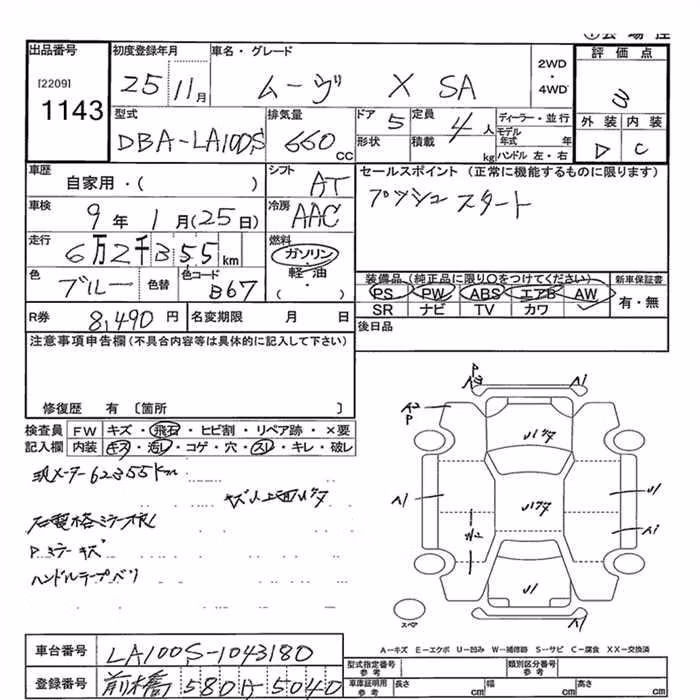 出品番号 初度登録年月 車名・グレード 2WD・4WD 評価点
[2209] 25 11月 ムーヴ X SA 3
1143
型式 排気量 ドア 定員 ディーラー・並行 外装 内装
DBA-LA100S 660 CC 5 4人 モデル年式 年 D C
形状 積載 kg ハンドル 左・右
車歴 シフト セールスポイント (正常に機能するものに限ります)
自家用・( ) AT プッシュスタート
車検 冷房
9年 1月(25日) AAC
走行 燃料
6万2千355km ガソリン
色 色替 色コード 軽油 装備品 (純正品に限り○をつけてください) 新車保証書
ブルー B67 ・( ) PS PW ABS エアB AW 有・無
SR ナビ TV カワ
R券 8,490円 名変期限 月 日 後日品
注意事項申告欄(不具合内容等は具体的に記入して下さい)
修復歴 有 〔箇所 〕
検査員 FW キズ・飛石・ヒビ割・リペア跡・×要
記入欄 内装 キズ・汚レ・コゲ・穴・スレ・キレ・破レ
現メーター62355km
Pミラーキズ
ハンドルテープバリ
P
A1
A2
P
A1
A1
U1
U1
スペア
A-キズ E-エクボ U-凹み W-補修跡 S-サビ C-腐食 XX-交換済
車台番号 LA100S-1043180
型式指定番号 参考 類別区分番号 参考
登録番号 前橋 580 A 5040
車庫証明用 参考 長さ cm 幅 cm 高さ cm